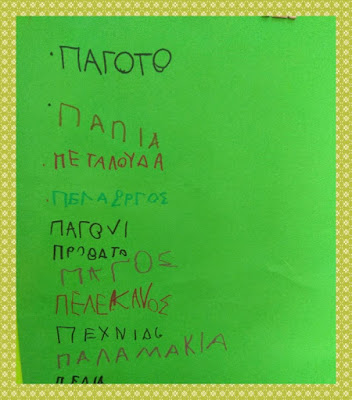 ·ΠΑΓΟΤΟ
·ΠΑΠΙΑ
·ΠΕΤΑΛΟΥΔΑ
·ΠΕΛΑΡΓΟΣ
ΠΑΓΟΝΙ
ΠΡΟΒΑΤΟ
ΜΑΓΟΣ
ΠΕΛΕΚΑΝΟΣ
ΠΕΧΝΙΔΙ
ΠΑΛΑΜΑΚΙΑ